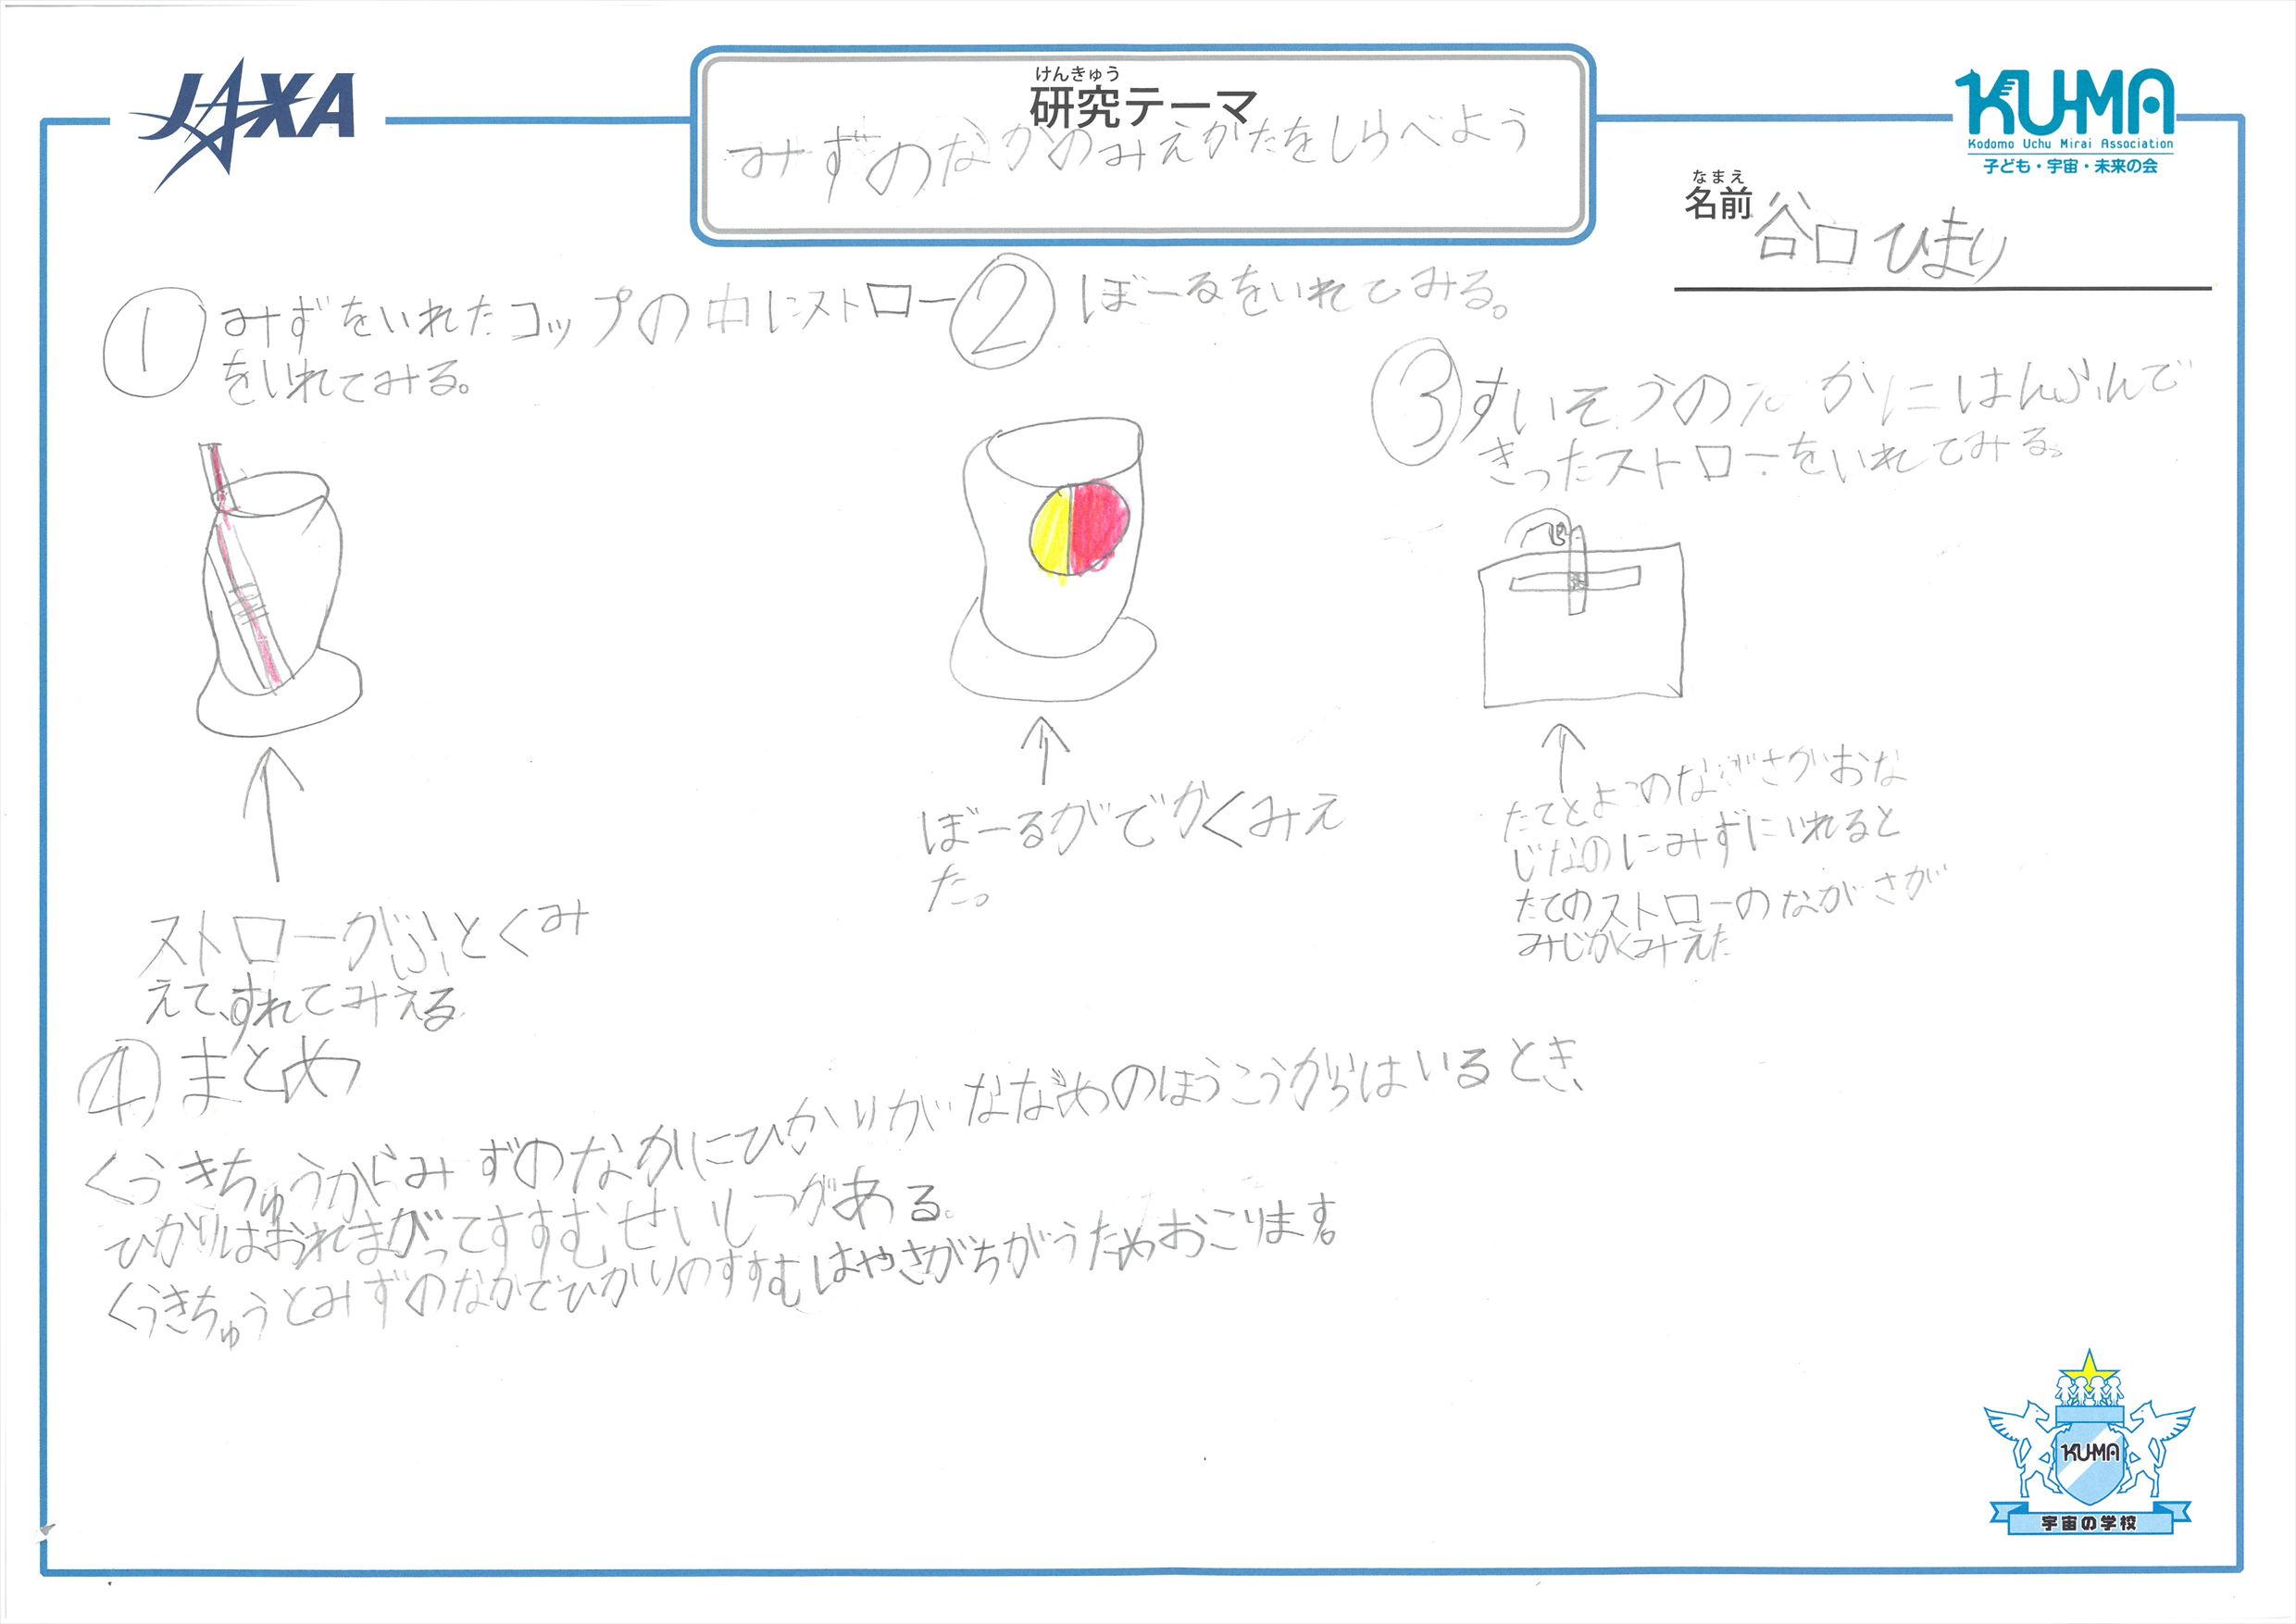 JAXA
けんきゅう
研究テーマ
みずのなかのみえかたをしらべよう
KUMA
Kodomo Uchu Mirai Association
子ども・宇宙・未来の会
なまえ
名前
谷口ひまり
① みずをいれたコップの中にストロー
をいれてみる。
② ぼーるをいれてみる。
③ すいそうのなかにはんぶんで
きったストローをいれてみる。
ストローがふとくみ
えて、ずれてみえる
ぼーるがでかくみえ
た。
たてとよこのながさがおな
じなのにみずにいれると
たてのストローのながさが
みじかくみえた
④ まとめ
くうきちゅうからみずのなかにひかりがななめのほうこうからはいるとき、
ひかりはおれまがってすすむせいしつがある。
くうきちゅうとみずのなかでひかりのすすむはやさがちがうためおこります。
KUMA
宇宙の学校